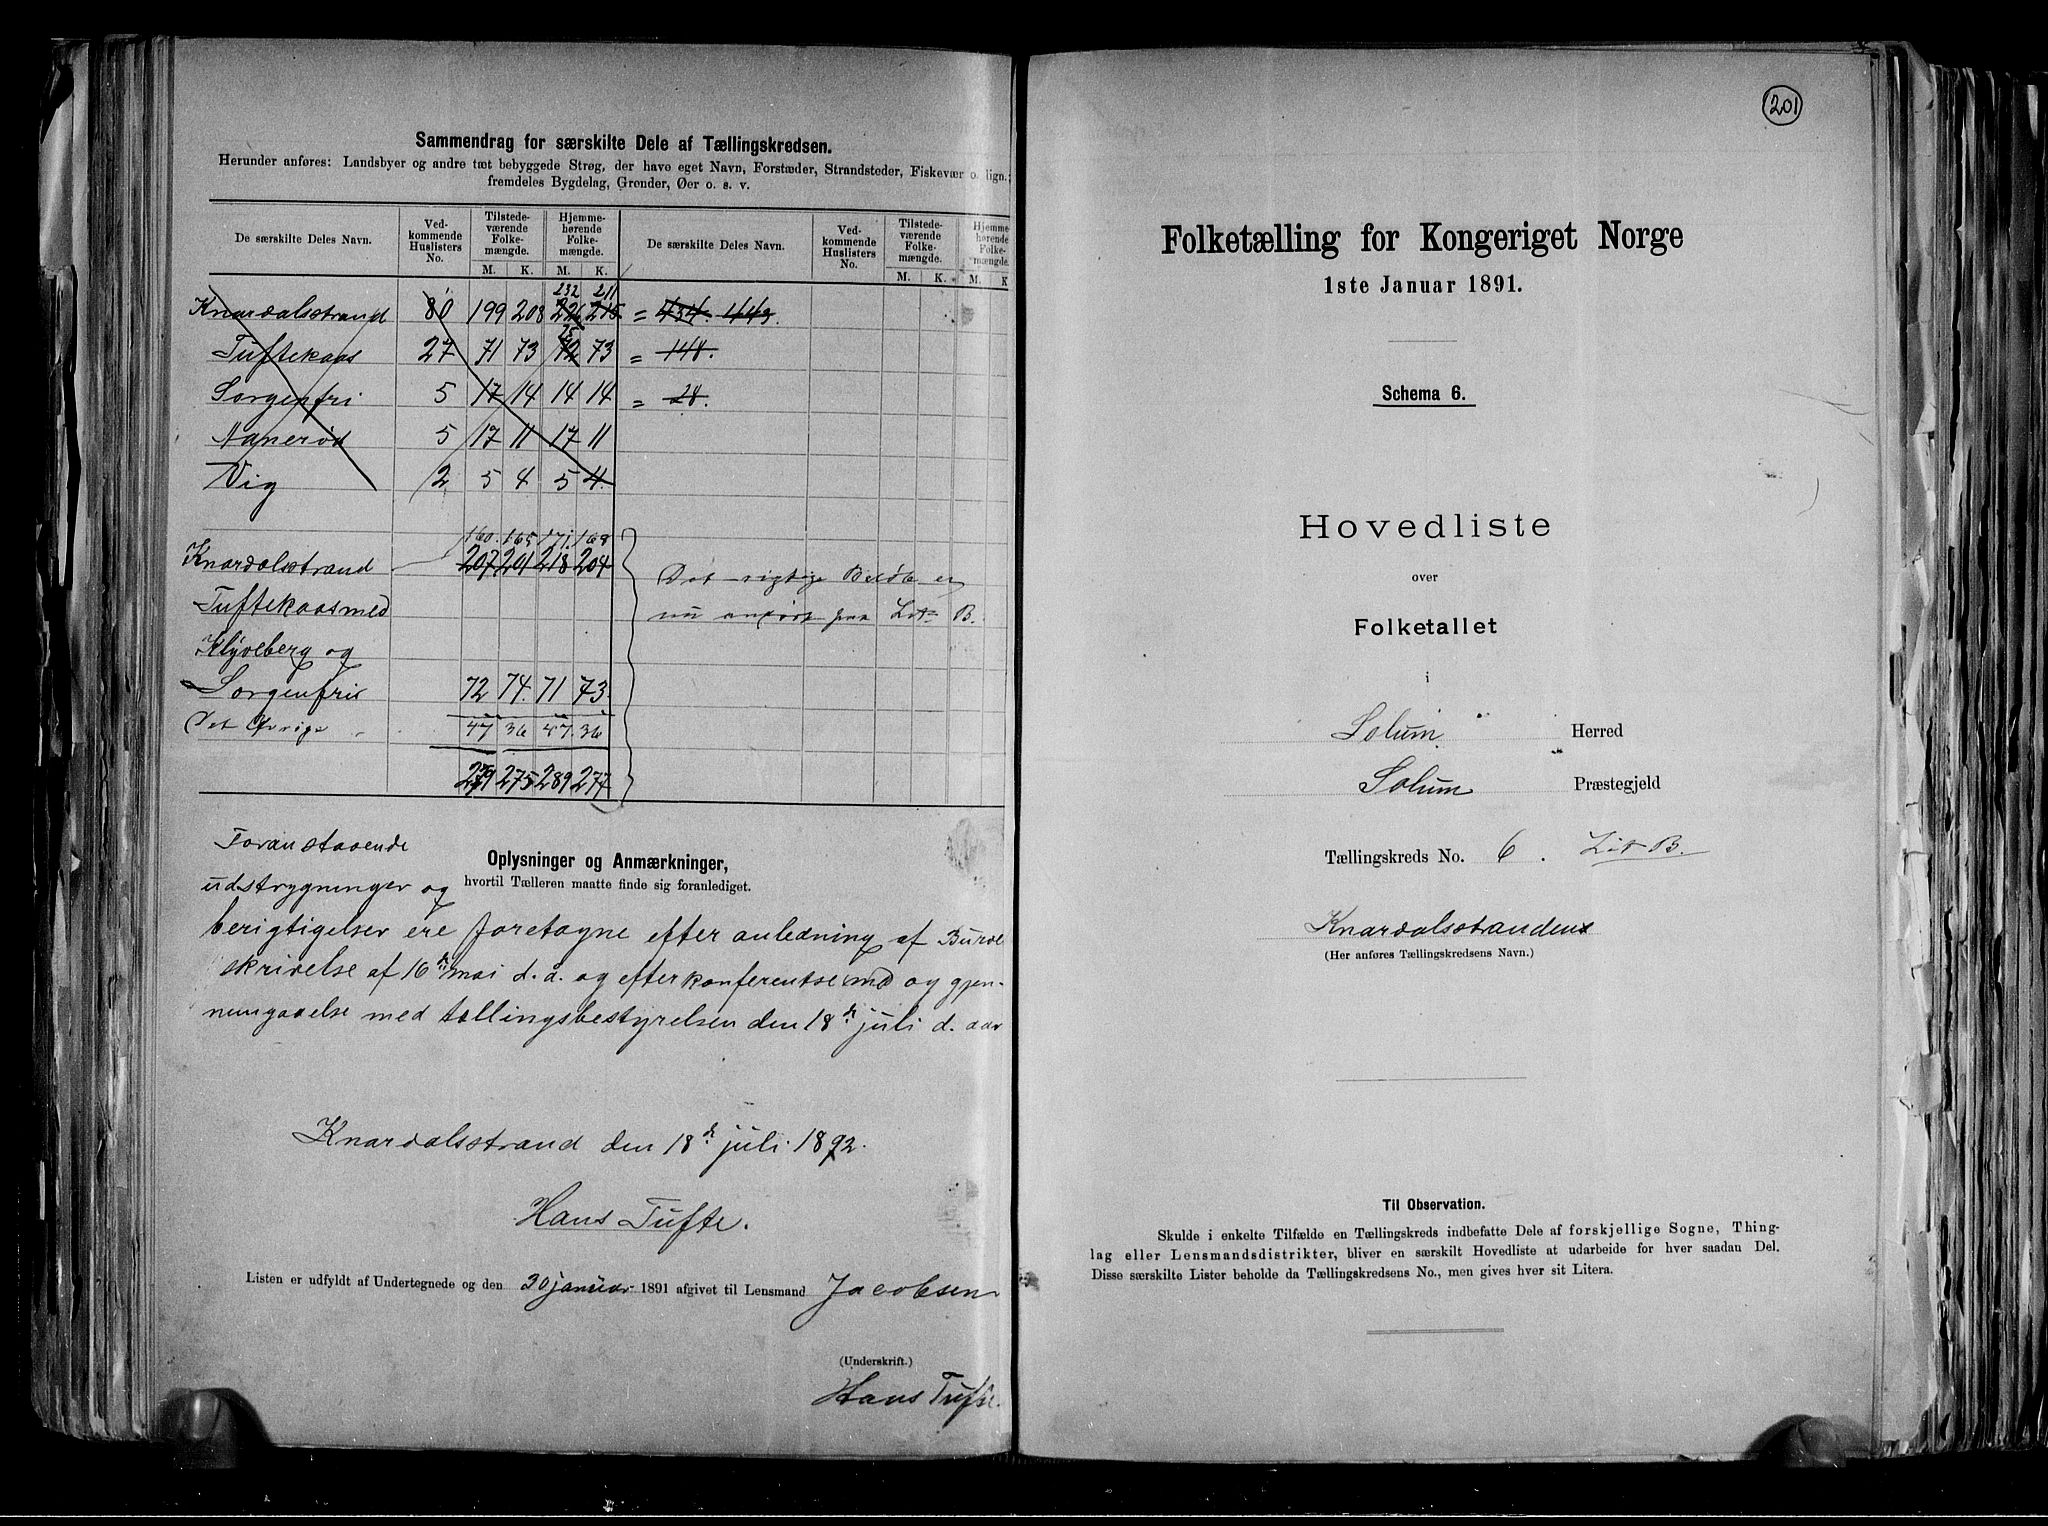 Sammendrag for særskilte Dele af Tællingskredsen.
Herunder anføres: Landsbyer og andre tæt bebyggede Strøg, der have eget Navn, Forstæder, Strandsteder, Fiskevær o. lign.;
fremdeles Bygdelag, Grender, Øer o. s. v.
De særskilte Deles Navn. Ved-kommende Huslisters No. Tilstede-værende Folke-mængde. Hjemme-hørende Folke-mængde. De særskilte Deles Navn. Ved-kommende Huslisters No. Tilstede-værende Folke-mængde. Hjemme-hørende Folke-mængde.
M. K. M. K. M. K. M. K
232 211
Knardalsstrand 80 199 208 226 215 = 434. 443.
75
Tuftekaas 27 71 73 72 73 = 148.
Sorgenfri 5 17 14 14 14 = 28.
Aanerød 5 17 11 17 11
Vig 2 5 4 5 4.
160. 165 171. 168
Knardalsstrand 207 201 218 204
Det rigtige Beløb er
Tuftekaas med
nu anført paa Litr B.
Klyveberg og
Sorgenfri 72 74. 71 73.
Det Øvrige 47 36 47. 36
279 275 289 277
Foranstaaende
Oplysninger og Anmærkninger,
hvortil Tælleren maatte finde sig foranlediget.
udstrygninger og
berigtigelser ere foretagne efter anledning af Bureau
skrivelse af 16de mai d. a. og efter konferentse med og gjen-
nemgaaelse med tællingsbestyrelsen den 18de juli d. aar
Knardalsstrand den 18de juli 1892.
Hans Tufte.
Listen er udfyldt af Undertegnede og den 30 januar 1891 afgivet til Lensmand Jacobsen
(Underskrift.)
Hans Tufte.
201
Folketælling for Kongeriget Norge
1ste Januar 1891.
Schema 6.
Hovedliste
over
Folketallet
i
Solum Herred
Solum Præstegjeld
Tællingskreds No. 6. Litr B.
Knardalsstranden
(Her anføres Tællingskredsens Navn.)
Til Observation.
Skulde i enkelte Tilfælde en Tællingskreds indbefatte Dele af forskjellige Sogne, Thing-
lag eller Lensmandsdistrikter, bliver en særskilt Hovedliste at udarbeide for hver saadan Del.
Disse særskilte Lister beholde da Tællingskredsens No., men gives hver sit Litera.